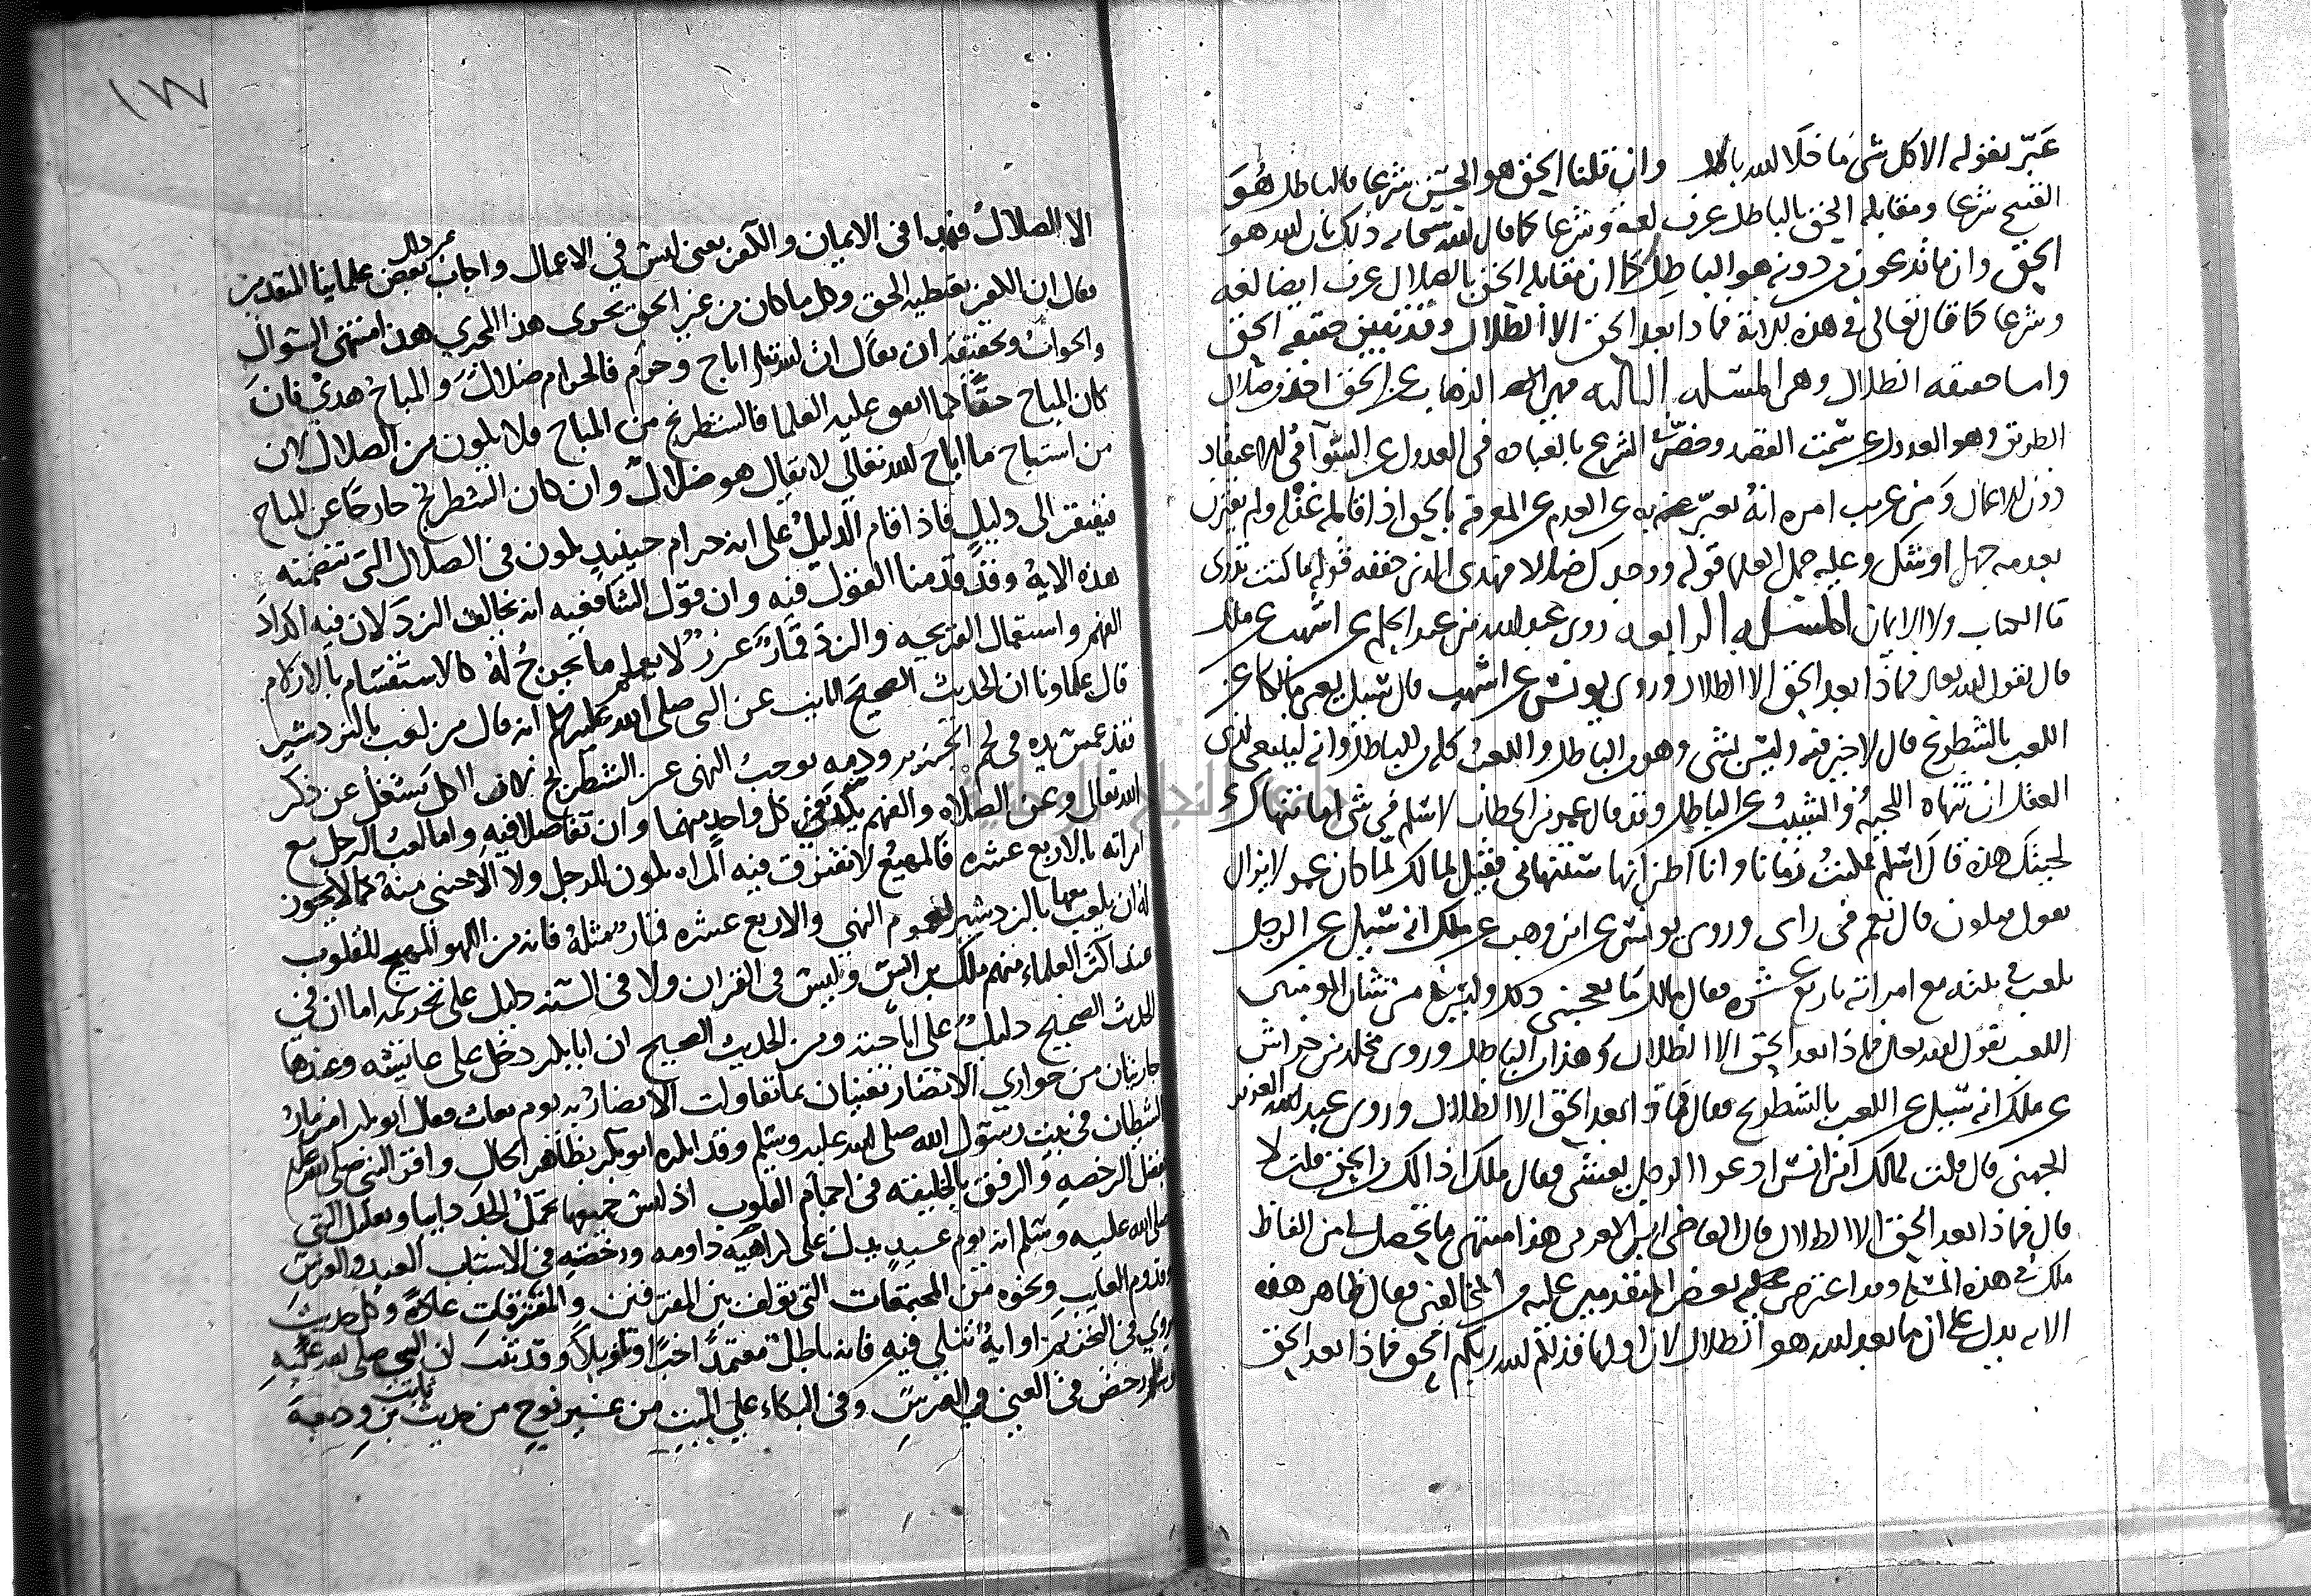 عَبّر بقوله الا كل شي ما خلا الله باطل وان قلنا الحق هو الحسن شرعا فالباطل هُوَ
القبيح شرعا ومقابله الحق بالباطل عرف لغة وشرعا كما قال الله سبحانه ذلك بان الله هو
الحق وان ما تدعون من دونه هو الباطل كما ان مقابله الحق بالضلال عرف ايضا لغه
وشرعا كما قال تعالى في هذه الاية فماذا بعد الحق الا الضلال وقد تبين حقيقه الحق
واما حقيقه الضلال وهي المسله الثالثه فهي الذهاب عن الحق اخذ من ضلال
الطريق وهو العدول عن سمت القصد وخصّ الشرع بالعباره في العدول عن السواء في الاعتقاد
دون الاعمال ومن غريب امره انه يعبّر به عن العدم عن المعرفه بالحق اذا قابله غفله ولم يقترن
بعدمه جهل او شك وعليه حمل العلما قوله ووجدك ضالا فهدى الذي حققه قوله ما كنت تدري
ما الكتاب ولا الايمان المسله الرابعه روى عبد الله بن عبد الحكم عن اشهب عن ملك
قال يقول الله تعالى فماذا بعد الحق الا الضلال وروى يونس عن اشهب قال سيل يعني مالكا عن
اللعب بالشطرنج قال لا خير فيه وليس بشي وهو من الباطل واللعب كله من الباطل وانه لينبغي لذي
العقل ان تنهاه اللحية والشيب عن الباطل وقد قال عمر بن الخطاب لاسلم في شي اما تنهاك
لحيتك هذه قال اسلم فمكثت زمانا وانا اظن انها ستنهاني فقيل لمالك لما كان عمر لا يزال
يقول فيكون قال نعم في راي وروى يونس عن ابن وهب عن ملك انه سيل عن الرجل
يلعب في بيته مع امراته باربع عشره فقال مالك ما يعجبني ذلك وليس من شان المومنين
اللعب يقول الله تعالى فماذا بعد الحق الا الضلال وهذا من الباطل وروى مخلد بن خداش
عن ملك انه سيل عن اللعب بالشطرنج فقال فماذا بعد الحق الا الضلال وروى عبد الله العزيز
الجهني قال قلت لمالك بن انس ادعو الرجل يعبث بي فقال ملك اذالك من الحق قلت لا
قال فماذا بعد الحق الا الضلال قال القاضي ابن العربي هذا منتهى ما تحصل لي من الفاظ
ملك في هذه المسله وقد اعترض عليه بعض المتقدمين عليه من المخالفين فقال ظاهر هذه
الايه يدل على ان ما بعد الله هو الضلال لان اولها فذلكم الله ربكم الحق فماذا بعد الحق
١٧٧
الا الضلال فهذا في الايمان والكفر يعني ليس في الاعمال واجاب بعض علماينا المتقدمين
عن ذلك
فقال ان الكفر تغطيه الحق وكل ما كان من غير الحق يجري هذا المجرى هذا منتهى السوال
والجواب وتحقيقه ان يقال ان الله تعلى اباح وحرم فالحرام ضلال والمباح هدى فان
كان المباح حقا كما اتفق عليه العلما فالشطرنج من المباح فلا يكون من الضلال لان
من استباح ما اباح الله تعالى لا يقال هو ضلال وان كان الشطرنج خارجا عن المباح
فيفتقر الى دليل فاذا قام الدليل على انه حرام حينيذ يكون من الضلال التي تتضمنته
هذه الاية وقد قدمنا القول فيه وان قول الشافعيه انه يخالف النرد لان فيه اكداد
الفهم واستعمال القريحه والنرد قمار غرر لا يعلم ما يخرج له كالاستقسام بالازلام
قال علماونا ان الحديث الصحيح الثابت عن النبي صلى الله عليه وسلم انه قال من لعب بالنردشير
فقد غمس يده في لحم الخنزير ودمه يوجب النهي عن الشطرنج لان الكل يشغل عن ذكر
الله تعالى وعن الصلاه والفهم كل واحد منهما وان تفاضلا فيه واما لعب الرجل مع
امراته بالاربع عشره فالمهيع لا تفترق فيه المراه يكون للرجل ولا الاجنبي منه كما لا يجوز
له ان يلعب معها بالنردشير لعموم النهي والاربع عشره قمار مثله فانه من اللهو المهيج للقلوب
عند اكثر العلماء منهم ملك بن انس وليس في القران ولا في السنه دليل على تحريمه اما ان في
الحديث الصحيح دليل على اباحته ومن الحديث الصحيح ان ابا بكر دخل على عايشه وعندها
جاريتان من جواري الانصار تغنيان بما تقاولت الانصار به يوم بعاث فقال ابو بكر امزمار
الشيطان في بيت رسول الله صلى الله عليه وسلم وقد ابو بكر بظاهر الحال واقر النبي صلى الله عليه
بفضل الرخصه والرفق بالخليقه في اجمام القلوب اذ ليس جميعها تحمل الجد دايما وتعليل النبي
صلى الله عليه وسلم انه يوم عيد يدل على كراهيه دوامه ورخصته في الاسباب كالعيد والعرس
وقدوم الغايب ونحوه من المجتمعات التي تولف بين المفترقين والمفترقات عادة وكل حديث
روي في التحريم او اية تتلى فيه فانه باطل معتمدا خبرا وتاويلا وقد ثبت ان النبي صلى الله عليه
وسلم رخص في الغنى في العرس وفي البكاء على الميت من غير نوح من حديث ثابت بن وديعة